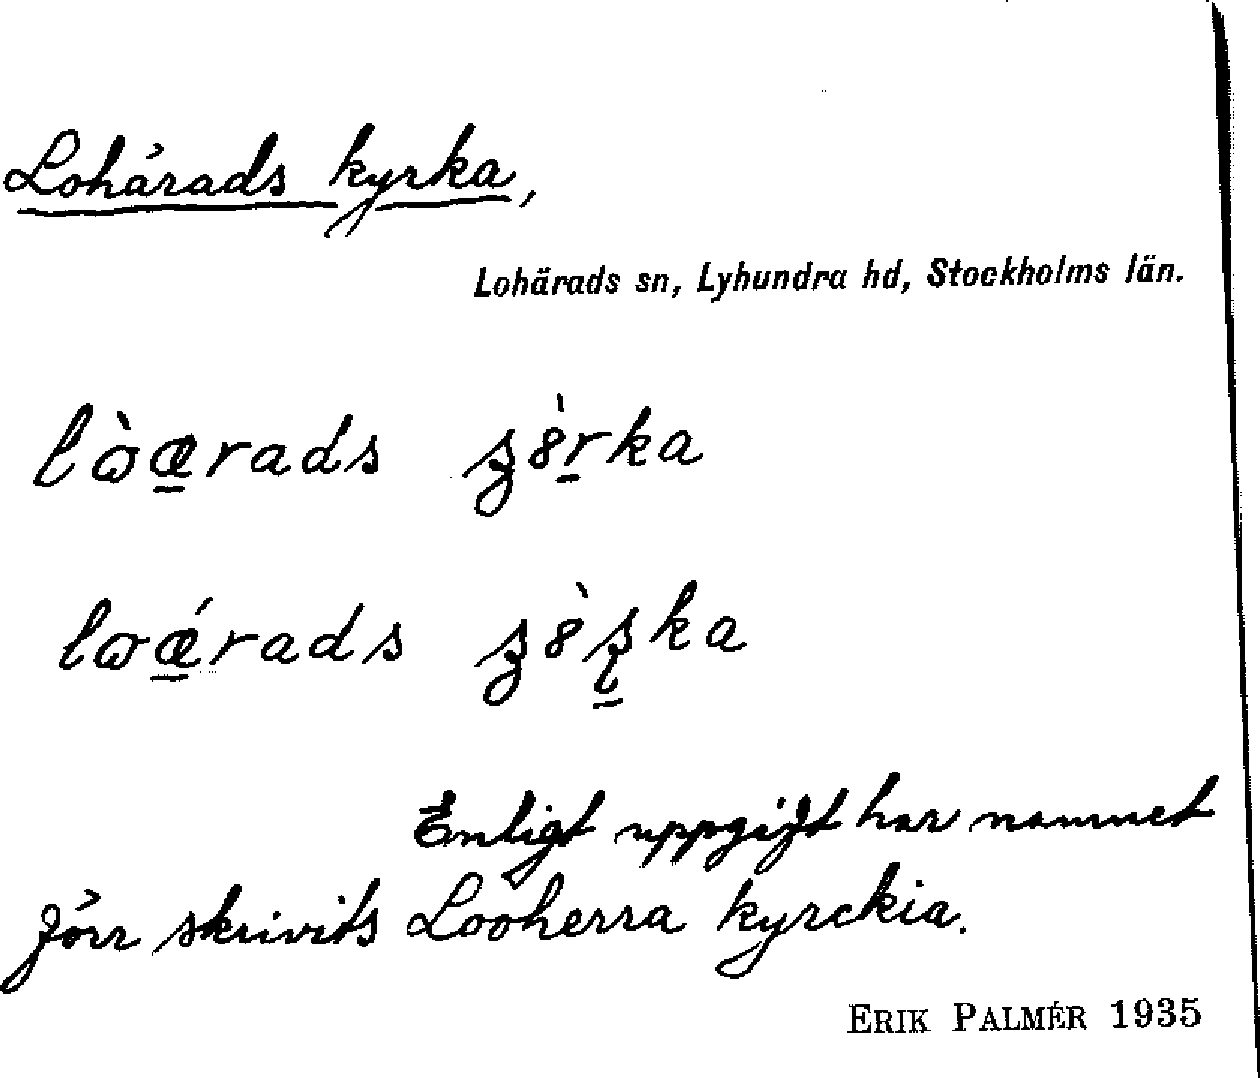 Lohärads kyrka,
Lohärads sn, Lyhundra hd, Stockholms län.
lòærads
loǽrads
Enligt uppgift har namnet
förr skrivits Looherra kyrckia.
ERIK PALMÉR 1935